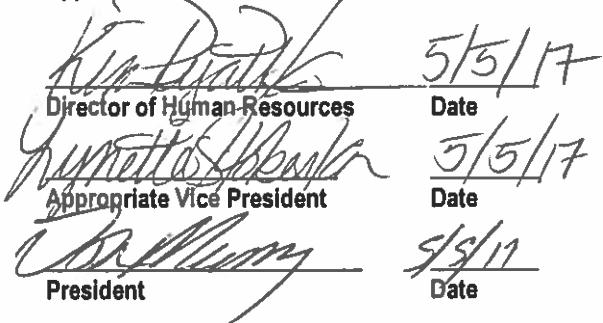 Kim 5/5/17
Director of Human Resources Date
Lynette 5/5/17
Appropriate Vice President Date
5/5/17
President Date